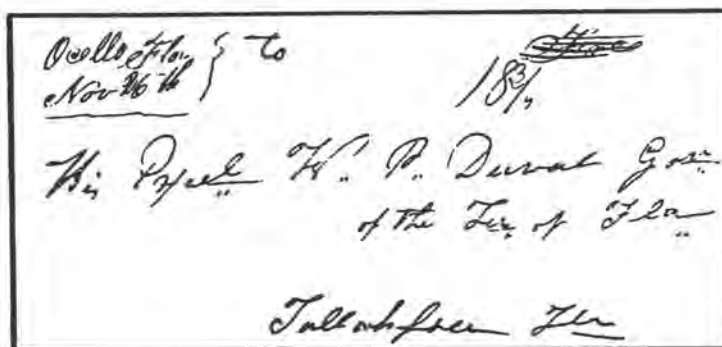 Ocello Flo. } to Free
Nov 26th 18¾
His Excel W. P. Duval Gov
of the Ter of Fla
Tallahassee Fla